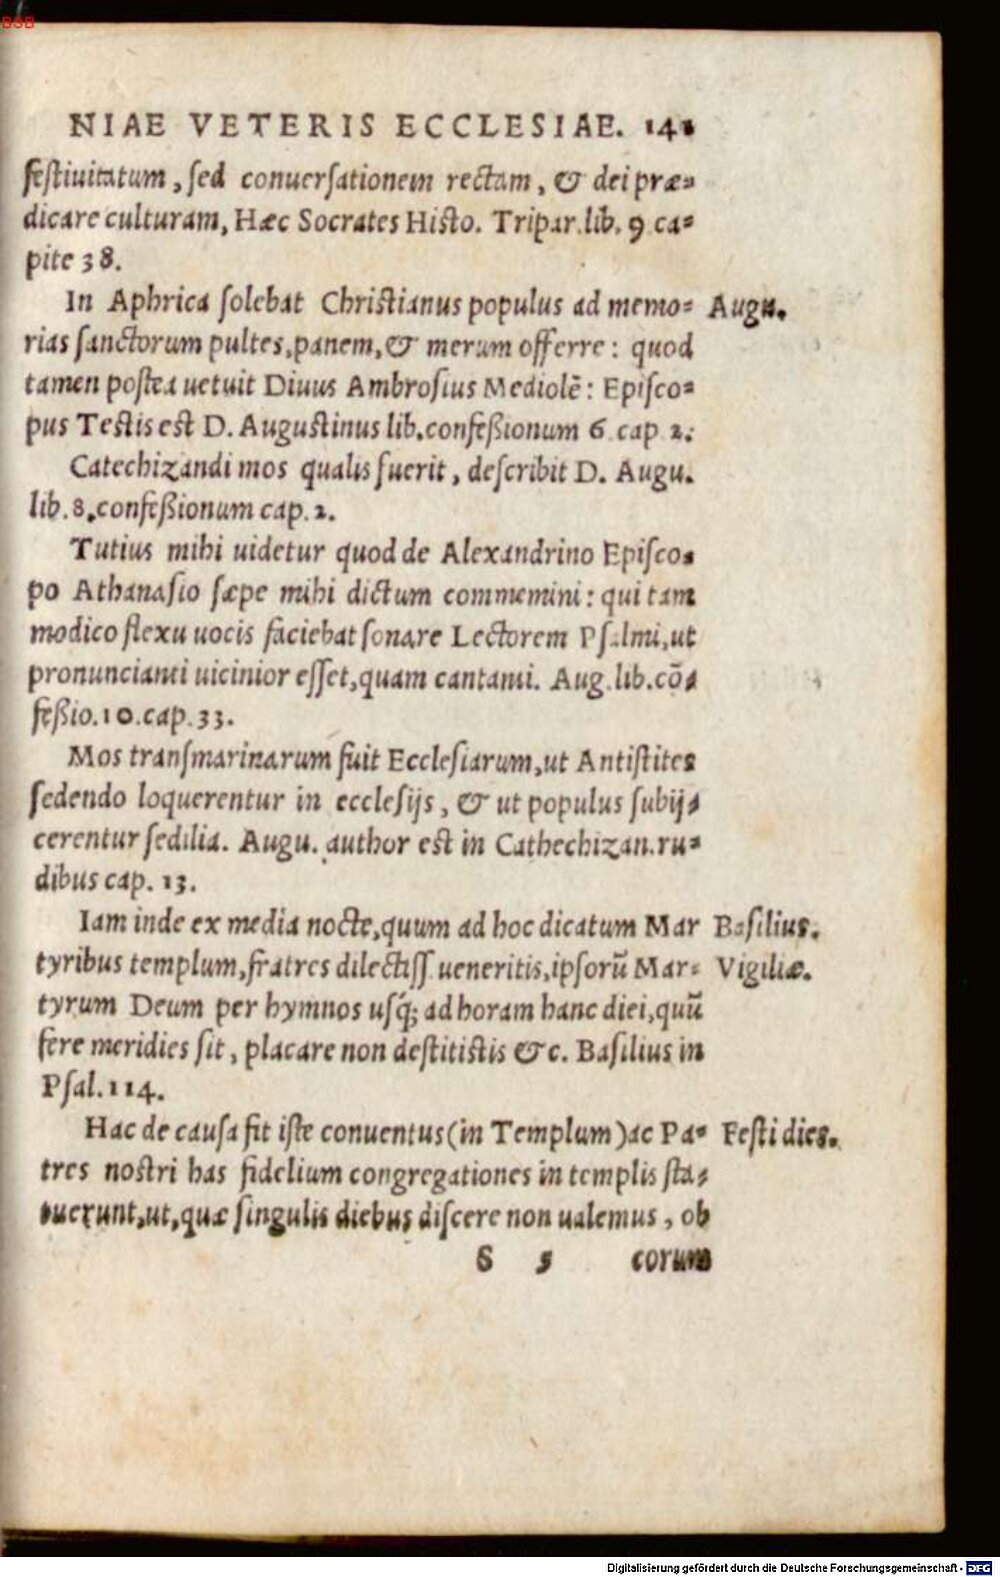 BSB
NIAE VETERIS ECCLESIAE. 141
festiuitatum, sed conuersationem rectam, & dei præ=
dicare culturam, Hæc Socrates Histo. Tripar. lib. 9 ca=
pite 38.
In Aphrica solebat Christianus populus ad memo= Augu.
rias sanctorum pultes, panem, & merum offerre: quod
tamen postea uetuit Diuus Ambrosius Mediolē: Episco=
pus Testis est D. Augustinus lib. confeßionum 6 cap 2:
Catechizandi mos qualis fuerit, describit D. Augu.
lib. 8. confeßionum cap. 2.
Tutius mihi uidetur quod de Alexandrino Episco=
po Athanasio sæpe mihi dictum commemini: qui tam
modico flexu uocis faciebat sonare Lectorem Psalmi, ut
pronuncianti uicinior esset, quam cantanti. Aug. lib. cō=
feßio. 10. cap. 33.
Mos transmarinarum fuit Ecclesiarum, ut Antistites
sedendo loquerentur in ecclesijs, & ut populus subij=
cerentur sedilia. Augu. author est in Cathechizan. ru=
dibus cap. 13.
Iam inde ex media nocte, quum ad hoc dicatum Mar Basilius.
tyribus templum, fratres dilectiss ueneritis, ipsorū Mar= Vigiliæ.
tyrum Deum per hymnos usq́; ad horam hanc diei, quū
fere meridies sit, placare non destitistis &c. Basilius in
Psal. 114.
Hac de causa fit iste conuentus (in Templum) ac Pa= Festi dies.
tres nostri has fidelium congregationes in templis sta=
tuerunt, ut, quæ singulis diebus discere non ualemus, ob
S 5 eorum
Digitalisierung gefördert durch die Deutsche Forschungsgemeinschaft - DFG